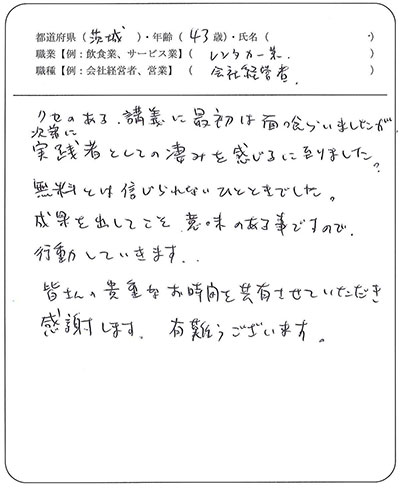 都道府県(茨城)・年齢(43歳)・氏名(　　・)
職業【例:飲食業、サービス業】(レンタカー業)
職種【例:会社経営者、営業】(会社経営者)
クセのある、講義に最初は面喰らいましたが
次第に
実践者としての凄みを感じるに至りました。
無料とは信じられないひとときでした。
成果を出してこそ意味のある事ですので、
行動していきます..
皆さんの貴重なお時間を共有させていただき
感謝します. 有難うございます。